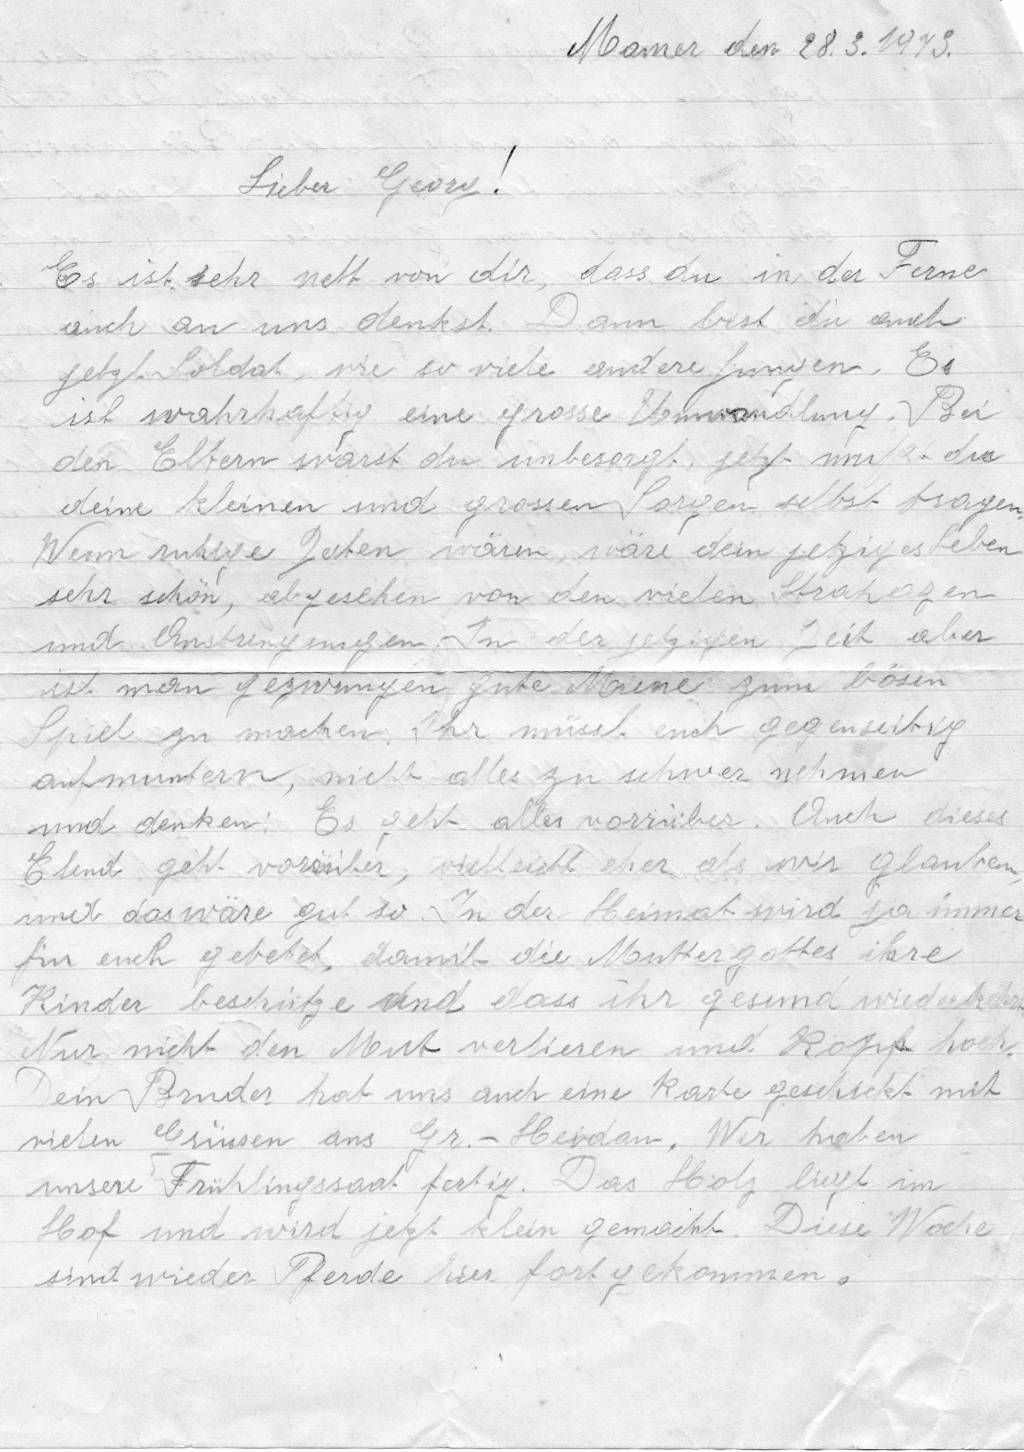 Mamer den 28.3.1943.
Lieber Georg!
Es ist sehr nett von dir, dass du in der Ferne
auch an uns denkst. Dann bist du auch
jetzt Soldat, wie so viele andere Jungen. Es
ist wahrhaftig eine grosse Umwandlung. Bei
den Eltern warst du unbesorgt, jetzt mußt du
deine kleinen und grossen Sorgen selbst tragen.
Wenn ruhige Zeiten wären, wäre dein jetziges Leben
sehr schön, abgesehen von den vielen Strapazen
und Anstrengungen. In der jetzigen Zeit aber
ist man gezwungen gute Miene zum bösen
Spiel zu machen. Ihr müsst euch gegenseitig
aufmuntern, nicht alles zu schwer nehmen
und denken: Es geht alles vorrüber. Auch dieses
Elend geht vorüber, vielleicht eher als wir glauben,
und das wäre gut so. In der Heimat wird ja immer
für euch gebetet, damit die Muttergottes ihre
Kinder beschütze und dass ihr gesund wiederkehrt.
Nur nicht den Mut verlieren und Kopf hoch.
Dein Bruder hat uns auch eine Karte geschickt mit
vielen Grüssen aus Gr.-Heidau. Wir haben
unsere Frühlingssaat fertig. Das Holz liegt im
Hof und wird jetzt klein gemacht. Diese Woche
sind wieder Pferde hier fortgekommen.